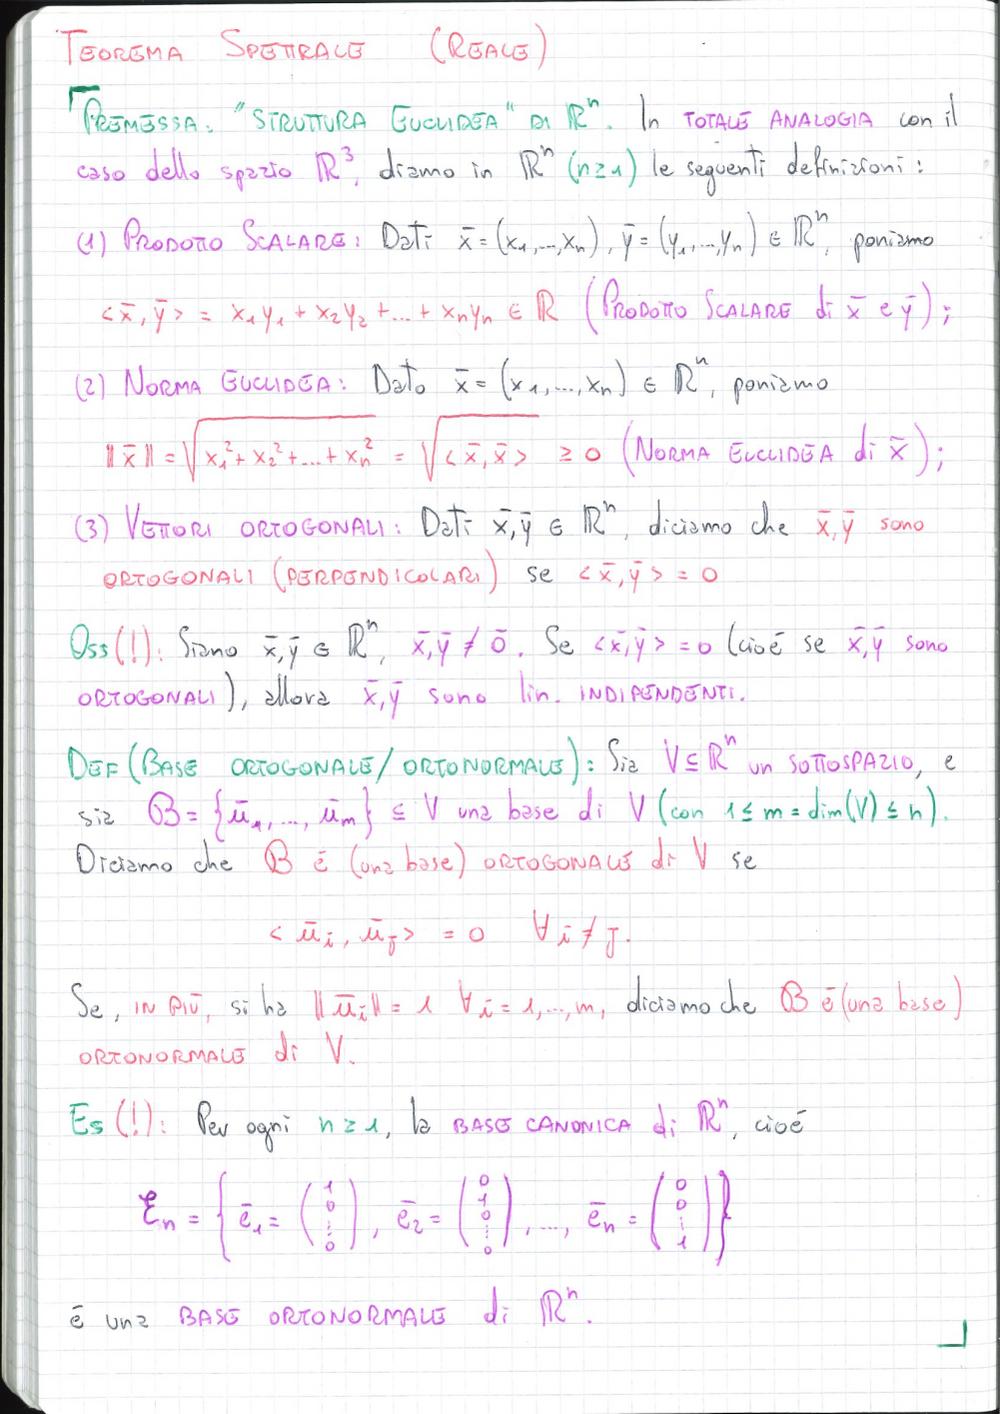 TEOREMA SPETTRALE (REALE)
PREMESSA: "STRUTTURA EUCLIDEA" DI ℝⁿ. In TOTALE ANALOGIA con il
caso dello spazio ℝ³, diamo in ℝⁿ (n≥1) le seguenti definizioni:
(1) PRODOTTO SCALARE: Dati x̄ = (x₁,...,xₙ), ȳ = (y₁,...,yₙ) ∈ ℝⁿ, poniamo
<x̄,ȳ> = x₁y₁ + x₂y₂ + ... + xₙyₙ ∈ ℝ (PRODOTTO SCALARE di x̄ e ȳ);
(2) NORMA EUCLIDEA: Dato x̄ = (x₁,...,xₙ) ∈ ℝⁿ, poniamo
‖x̄‖ = √(x₁² + x₂² + ... + xₙ²) = √<x̄,x̄> ≥ 0 (NORMA EUCLIDEA di x̄);
(3) VETTORI ORTOGONALI: Dati x̄,ȳ ∈ ℝⁿ, diciamo che x̄,ȳ sono
ORTOGONALI (PERPENDICOLARI) se <x̄,ȳ> = 0
Oss(!): Siano x̄,ȳ ∈ ℝⁿ, x̄,ȳ ≠ 0̄. Se <x̄,ȳ> = 0 (cioé se x̄,ȳ sono
ORTOGONALI), allora x̄,ȳ sono lin. INDIPENDENTI.
DEF (BASE ORTOGONALE/ORTONORMALE): Sia V ⊆ ℝⁿ un SOTTOSPAZIO, e
sia B = {ū₁,..., ūₘ} ⊆ V una base di V (con 1 ≤ m = dim(V) ≤ n).
Diciamo che B é (una base) ORTOGONALE di V se
<ūᵢ, ūⱼ> = 0 ∀ i ≠ j.
Se, IN PIÙ, si ha ‖ūᵢ‖ = 1 ∀ i = 1,...,m, diciamo che B é (una base)
ORTONORMALE di V.
Es (!): Per ogni n ≥ 1, la BASE CANONICA di ℝⁿ, cioé
Ɛₙ = { ē₁ = (1 0 ⋮ 0), ē₂ = (0 1 0 ⋮ 0), ..., ēₙ = (0 0 ⋮ 1) }
é una BASE ORTONORMALE di ℝⁿ.